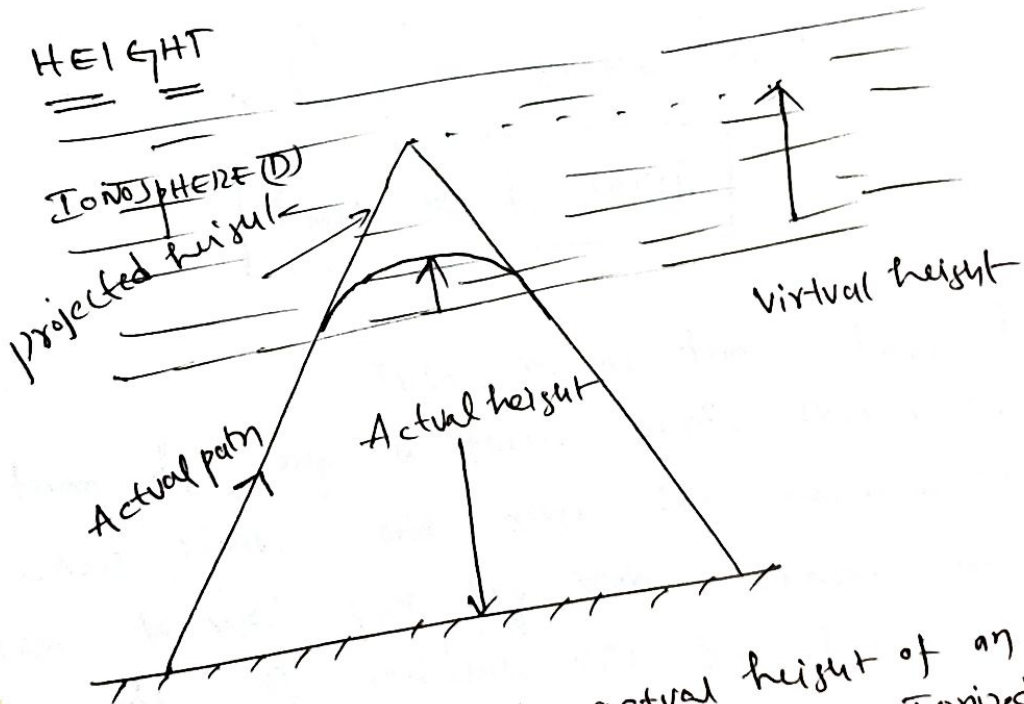 HEIGHT
IONOSPHERE (D)
projected height
virtual height
Actual height
Actual path
actual height of an
Ionized